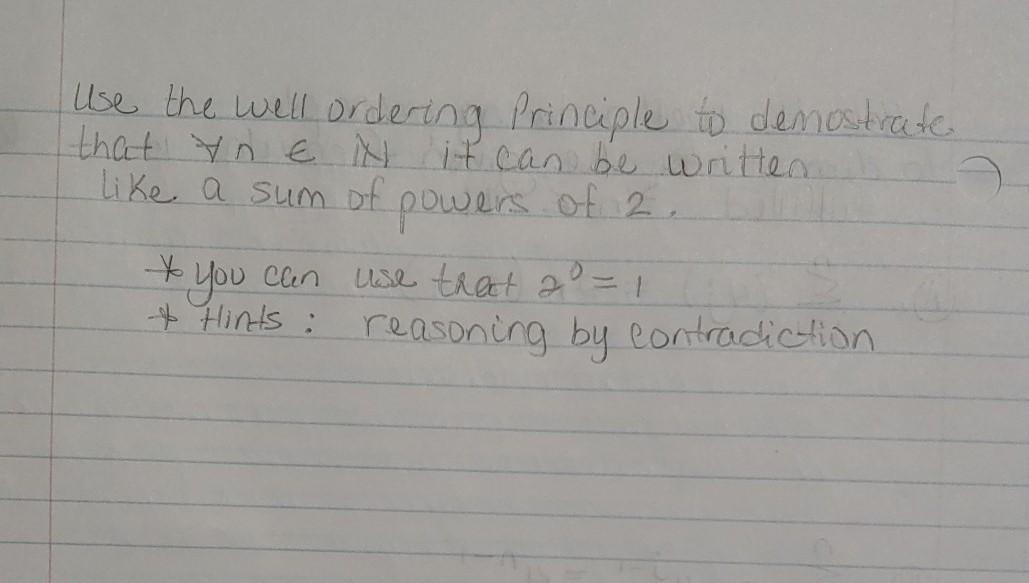 Use the well ordering Principle to demostrate
that ∀n ∈ ℕ it can be written
like a sum of powers of 2.
* you can use that 2⁰ = 1
* Hints : reasoning by contradiction